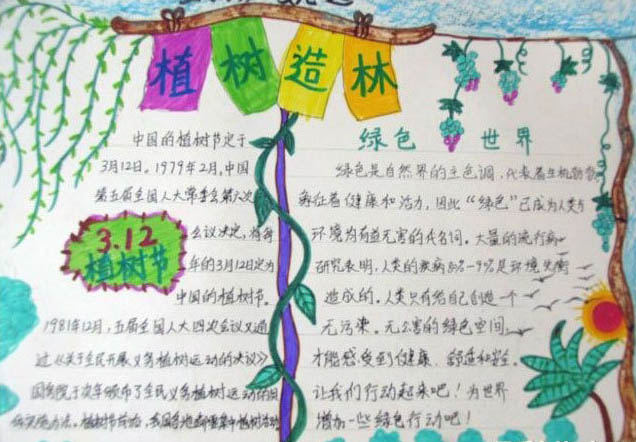 植树造林
中国的植树节定于
3月12日。1979年2月,中国
第五届全国人大常委会第六次
3.12
植树节
会议决定,将每
年的3月12日定为
中国的植树节。
1981年12月,五届全国人大四次会议又通
过《关于全民开展义务植树运动的决议》
国务院于次年颁布了全民义务植树运动的
实施办法。植树节前后,我国各地都要集中植树
绿色世界
绿色是自然界的主色调,代表着生机勃勃
象征着健康和活力,因此“绿色”已成为人类与
环境均有益无害的代名词。大量的流行病
研究表明,人类的疾病 是环境失衡
造成的。人类只有给自己创造一个
无污染。无公害的绿色空间,
才能感受到健康、舒适和安全。
让我们行动起来吧!为世界
增加一些绿色行动吧!